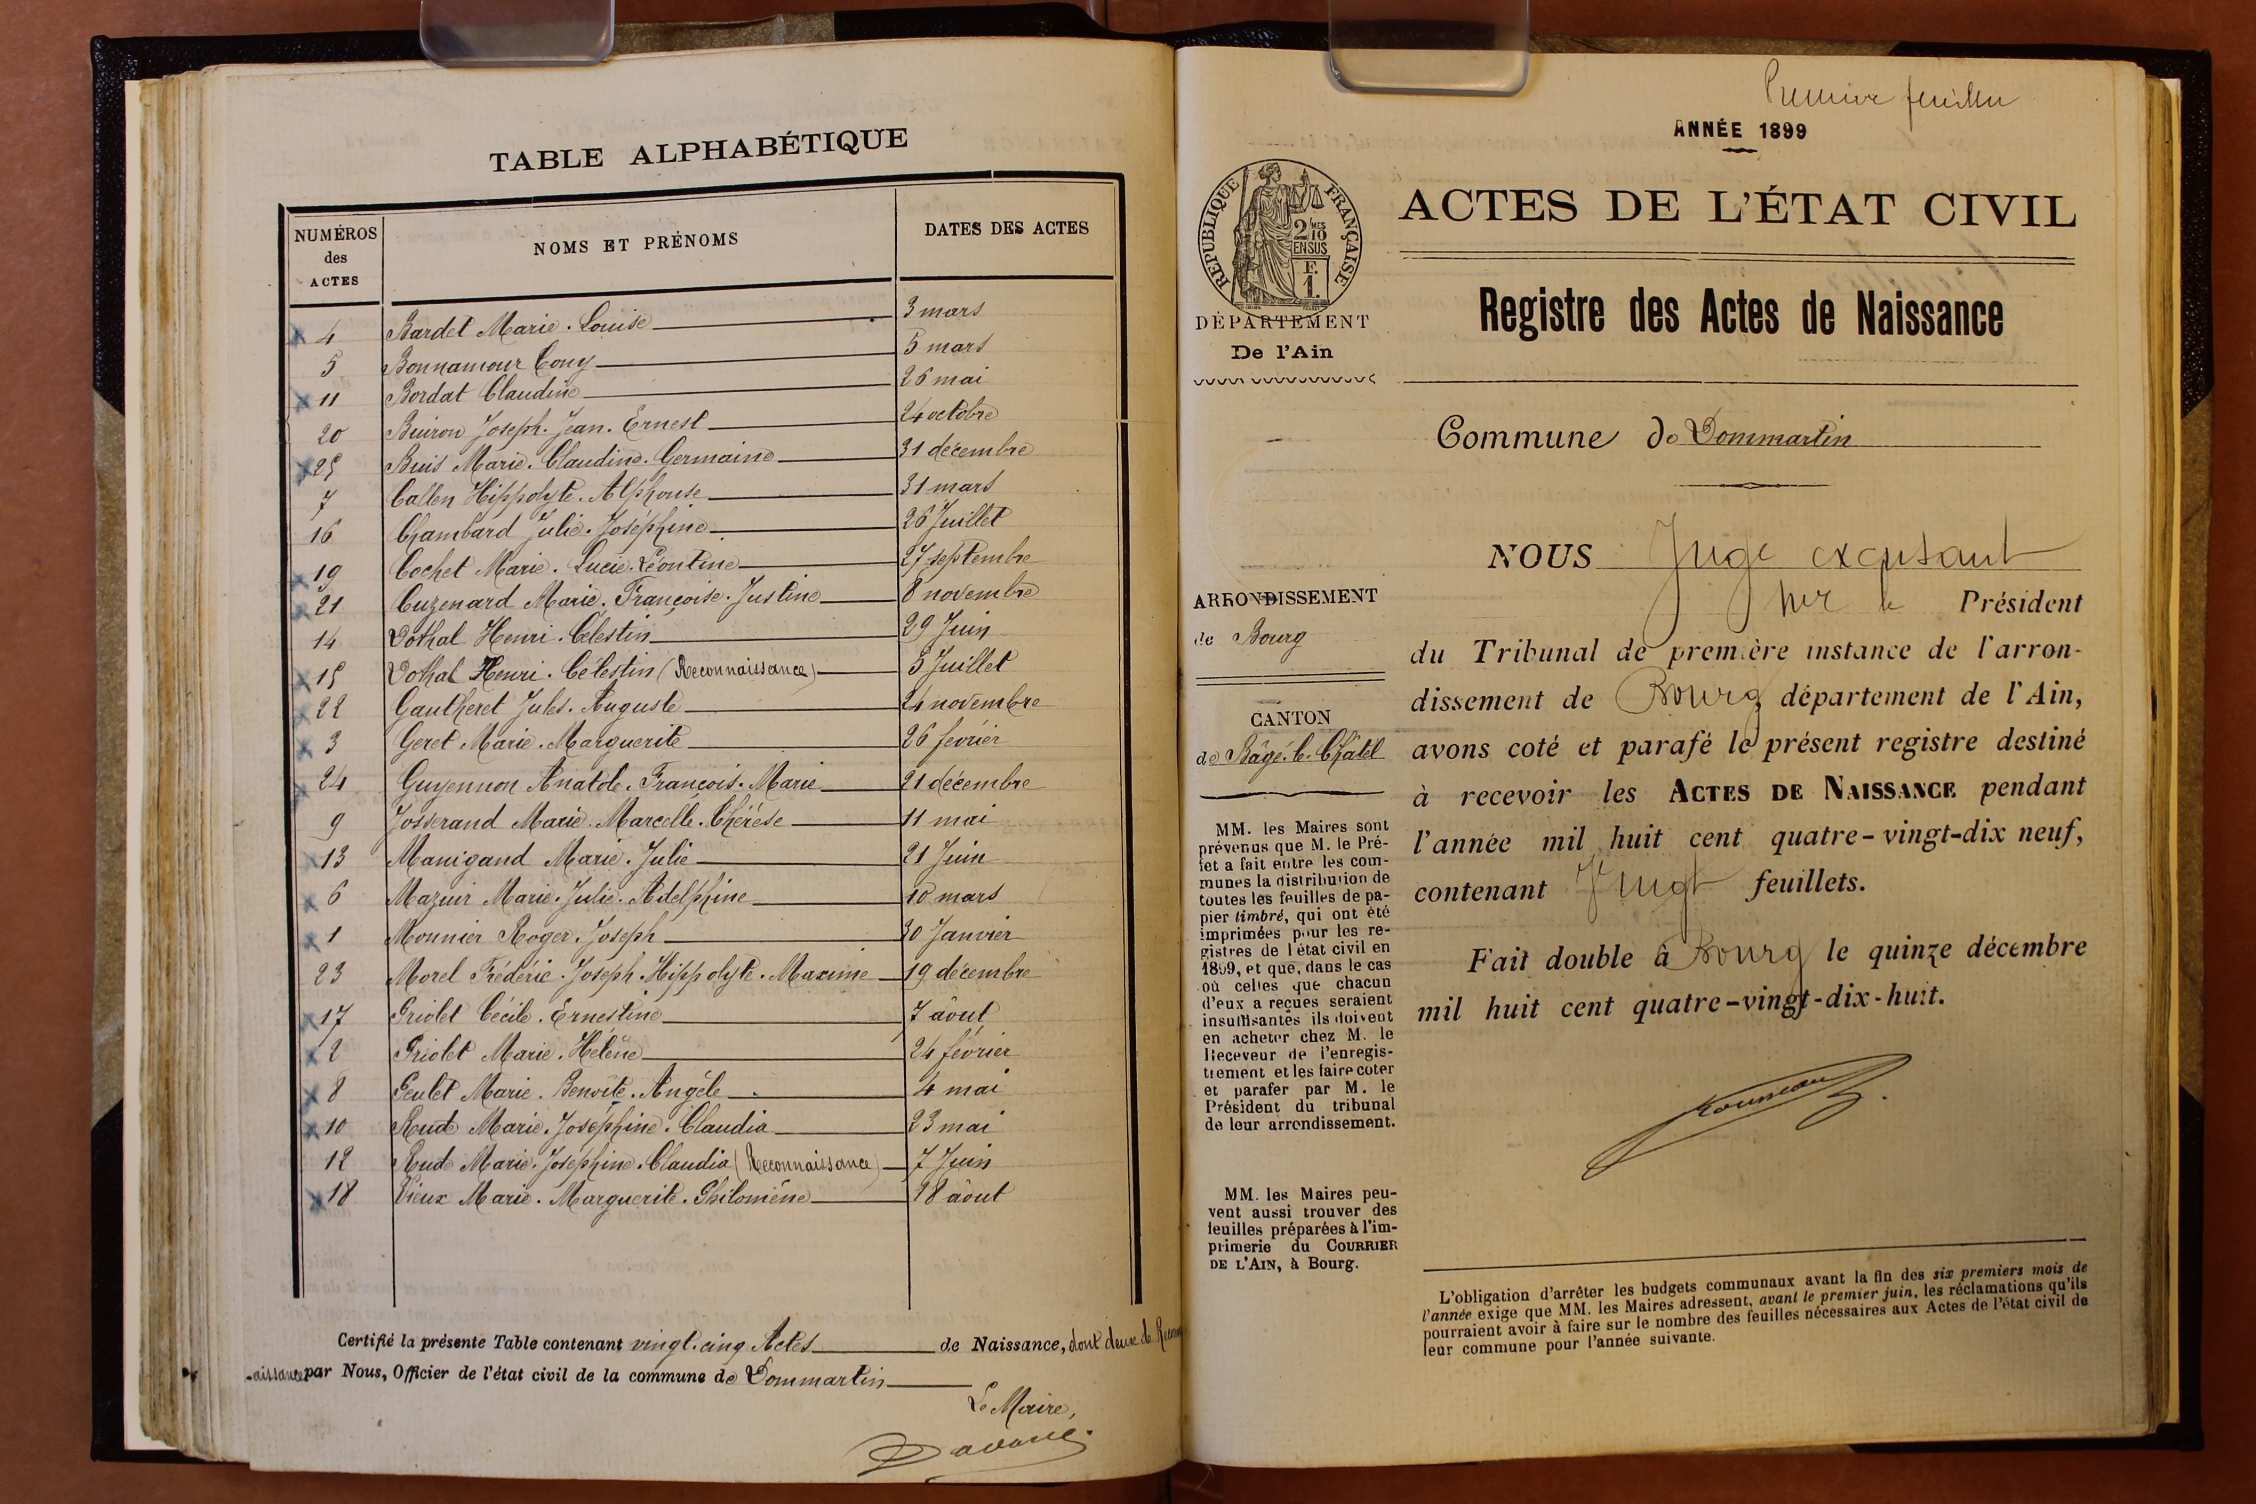 TABLE ALPHABÉTIQUE
NUMÉROS des ACTES NOMS ET PRÉNOMS DATES DES ACTES
4 Bardet Marie. Louise 3 mars
5 Bonnamour Cony 5 mars
11 Bordat Claudine 26 mai
20 Buiron Joseph. Jean. Ernest 24 octobre
25 Buis Marie. Claudine. Germaine 31 décembre
7 Callen Hippolyte. Alphonse 31 mars
16 Chambard Julie. Joséphine 26 Juillet
19 Cochet Marie. Lucie. Léontine 27 septembre
21 Cuzenard Marie. Françoise. Justine 8 novembre
14 Dothal Henri. Célestin 29 Juin
15 Dothal Henri. Célestin (Reconnaissance) 5 Juillet
22 Gautheret Jules. Auguste 24 novembre
3 Geret Marie. Marguerite 26 février
24 Guyennon Anatole. François. Marie 21 décembre
9 Josserand Marie. Marcelle. Thérèse 11 mai
13 Manigand Marie. Julie 21 Juin
6 Mazuir Marie. Julie. Adelphine 10 mars
1 Monnier Roger. Joseph 30 Janvier
23 Morel Frédéric. Joseph. Hippolyte. Maxime 19 décembre
17 Priolet Cécile. Ernestine 7 août
2 Priolet Marie. Hélène 24 février
8 Peulet Marie. Benoîte. Angèle 4 mai
10 Rude Marie. Joséphine. Claudia 23 mai
12 Rude Marie. Joséphine. Claudia (Reconnaissance) 7 Juin
18 Vieux Marie. Marguerite. Philomène 18 août
Certifié la présente Table contenant vingt-cinq Actes de Naissance, dont deux de Reconn
-aissance par Nous, Officier de l'état civil de la commune de Dommartin
Le Maire,
Premier feuillet
ANNÉE 1899
RÉPUBLIQUE FRANÇAISE
2/10MES
EN SUS
F.
1.
DÉPARTEMENT
De l'Ain
ACTES DE L'ÉTAT CIVIL
Registre des Actes de Naissance
Commune de Dommartin
ARRONDISSEMENT
de Bourg
CANTON
de Bâgé-le-Châtel
MM. les Maires sont
prévenus que M. le Pré-
fet a fait entre les com-
munes la distribution de
toutes les feuilles de pa-
pier timbré, qui ont été
imprimées pour les re-
gistres de l'état civil en
1899, et que, dans le cas
où celles que chacun
d'eux a reçues seraient
insuffisantes ils doivent
en acheter chez M. le
Receveur de l'enregis-
trement et les faire coter
et parafer par M. le
Président du tribunal
de leur arrondissement.
MM. les Maires peu-
vent aussi trouver des
feuilles préparées à l'im-
primerie du COURRIER
DE L'AIN, à Bourg.
NOUS Juge
Président
du Tribunal de première instance de l'arron-
dissement de Bourg département de l'Ain,
avons coté et parafé le présent registre destiné
à recevoir les ACTES DE NAISSANCE pendant
l'année mil huit cent quatre-vingt-dix neuf,
contenant Vingt feuillets.
Fait double à Bourg le quinze décembre
mil huit cent quatre-vingt-dix-huit.
L'obligation d'arrêter les budgets communaux avant la fin des six premiers mois de
l'année exige que MM. les Maires adressent, avant le premier juin, les réclamations qu'ils
pourraient avoir à faire sur le nombre des feuilles nécessaires aux Actes de l'état civil de
leur commune pour l'année suivante.